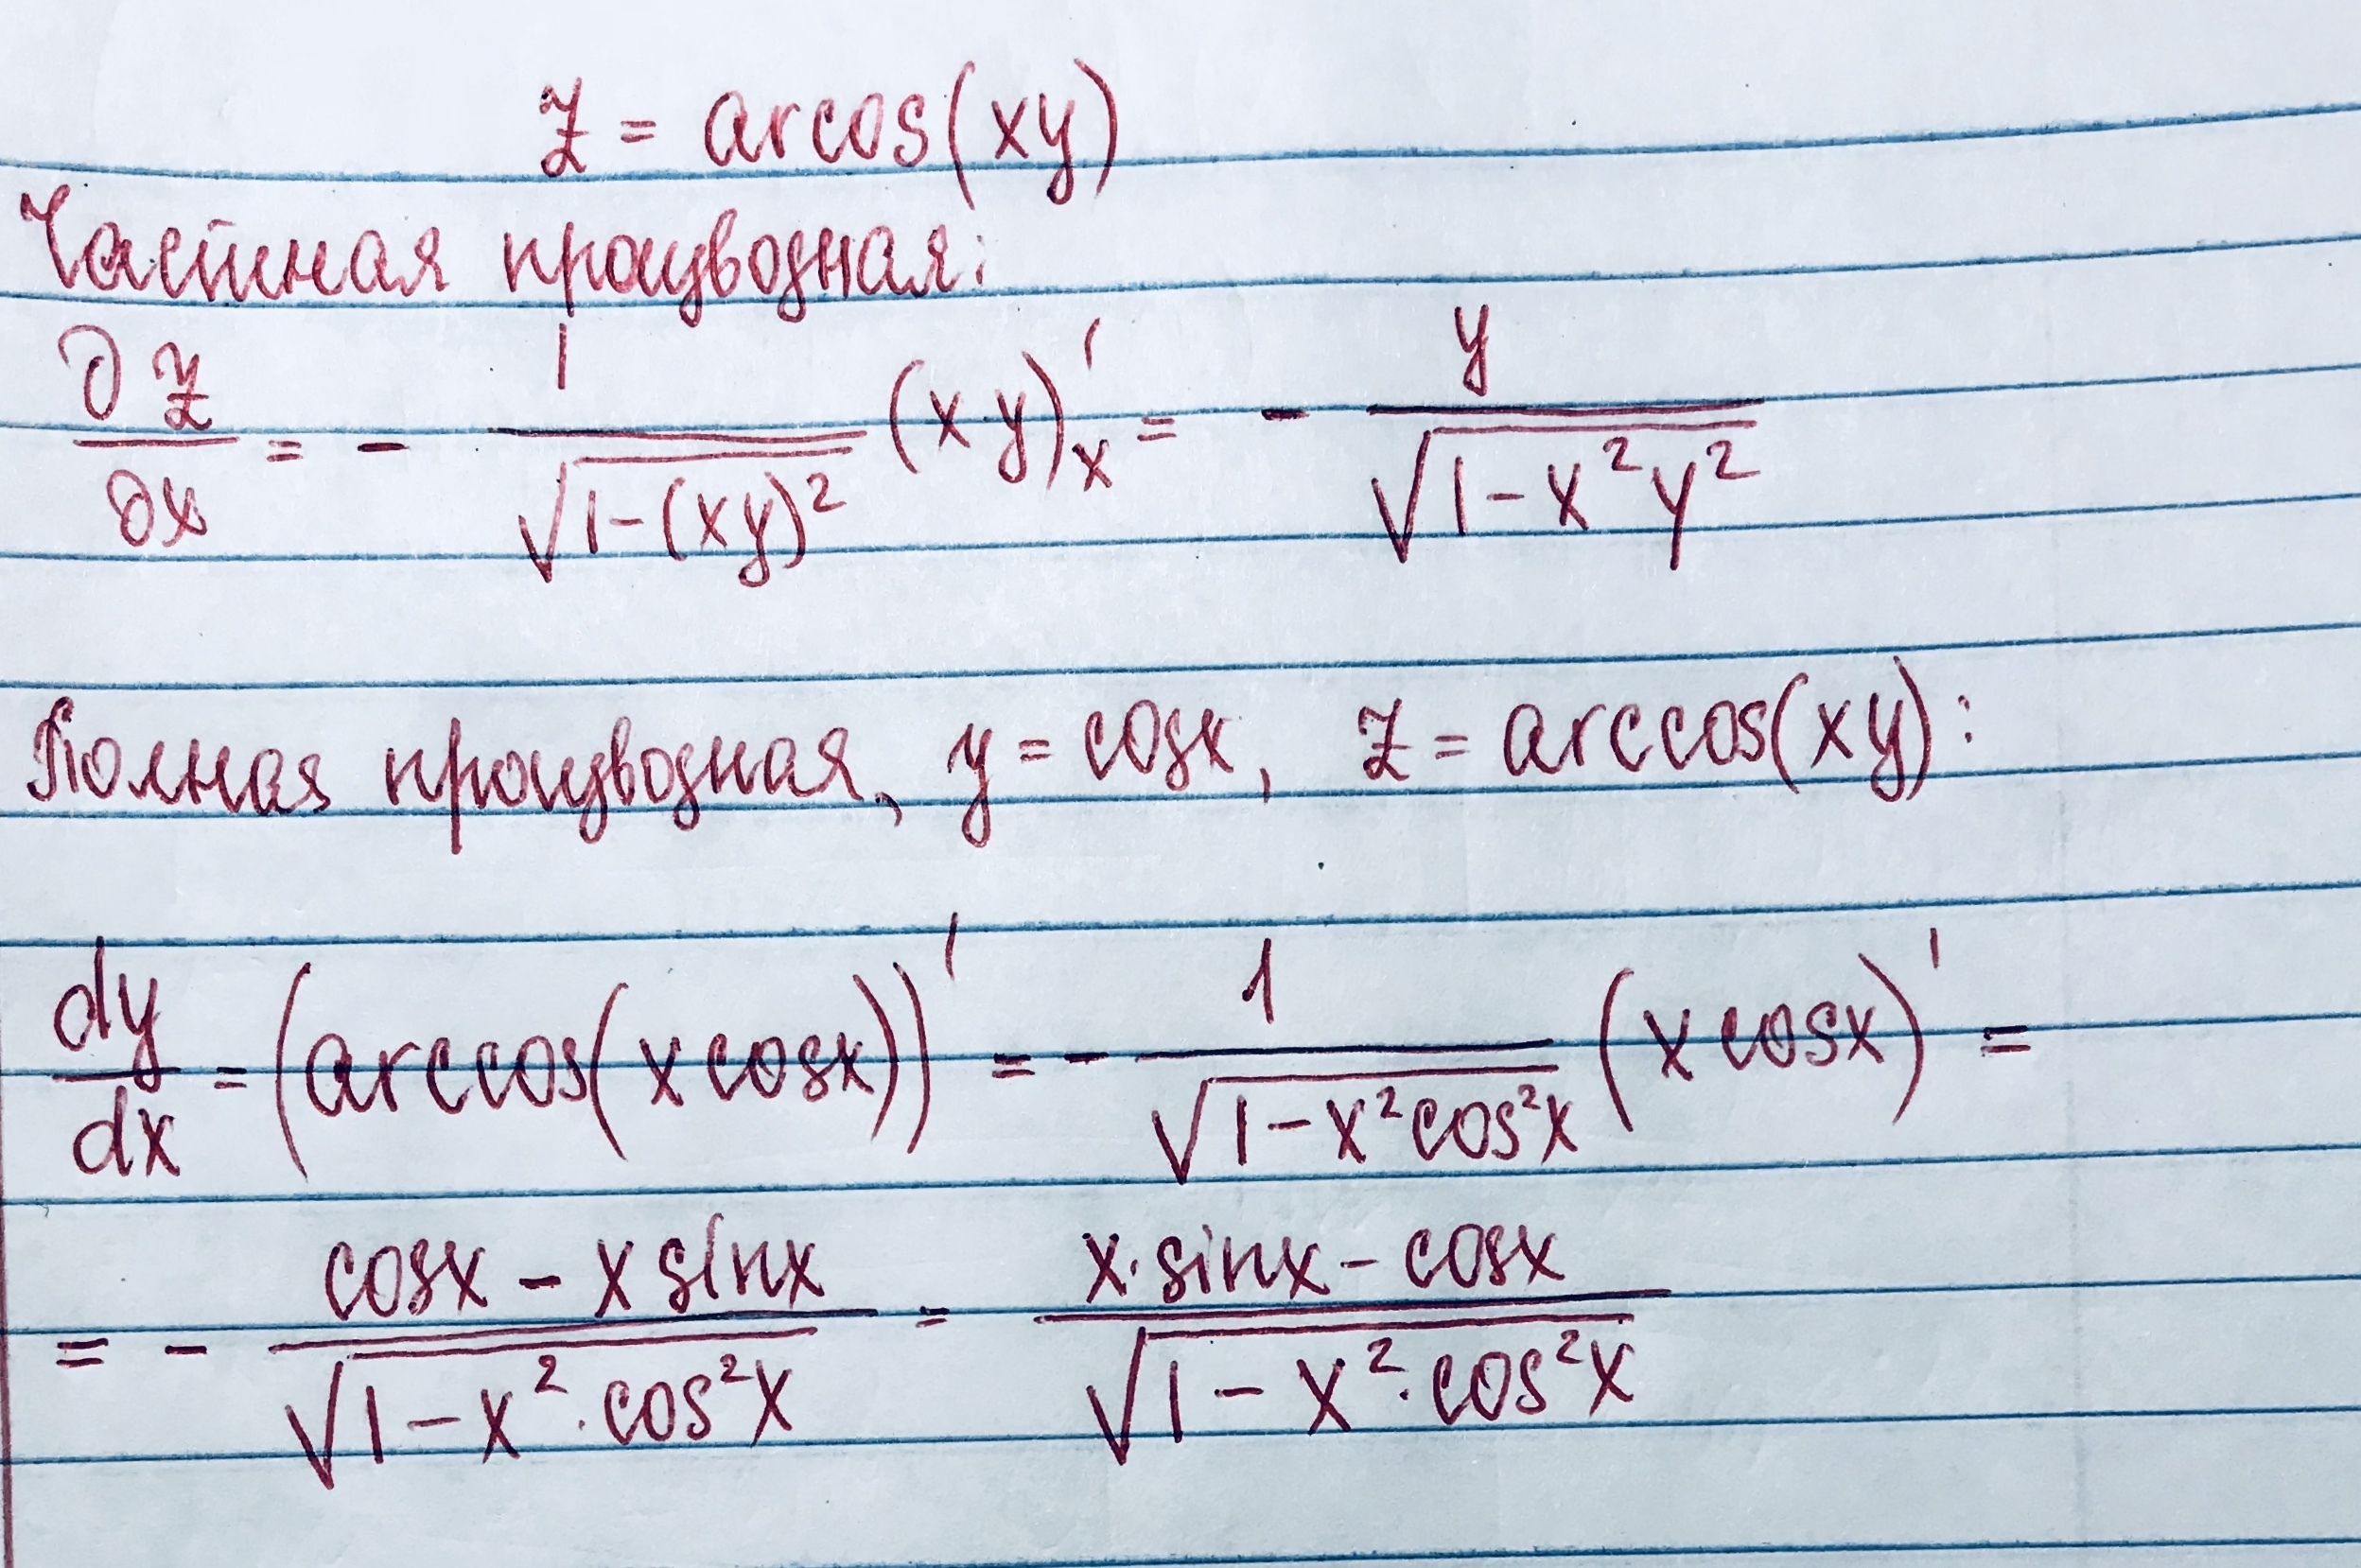 z = arcos(xy)
Частная производная:
∂z/∂x = - 1/√(1-(xy)²) (x·y)'ₓ = - y/√(1-x²y²)
Полная производная, y = cosx, z = arccos(xy):
dy/dx = (arccos(x cosx))' = - 1/√(1-x²cos²x) (x cosx)' =
= - (cosx - x sinx)/√(1-x²·cos²x) = (x·sinx - cosx)/√(1-x²·cos²x)